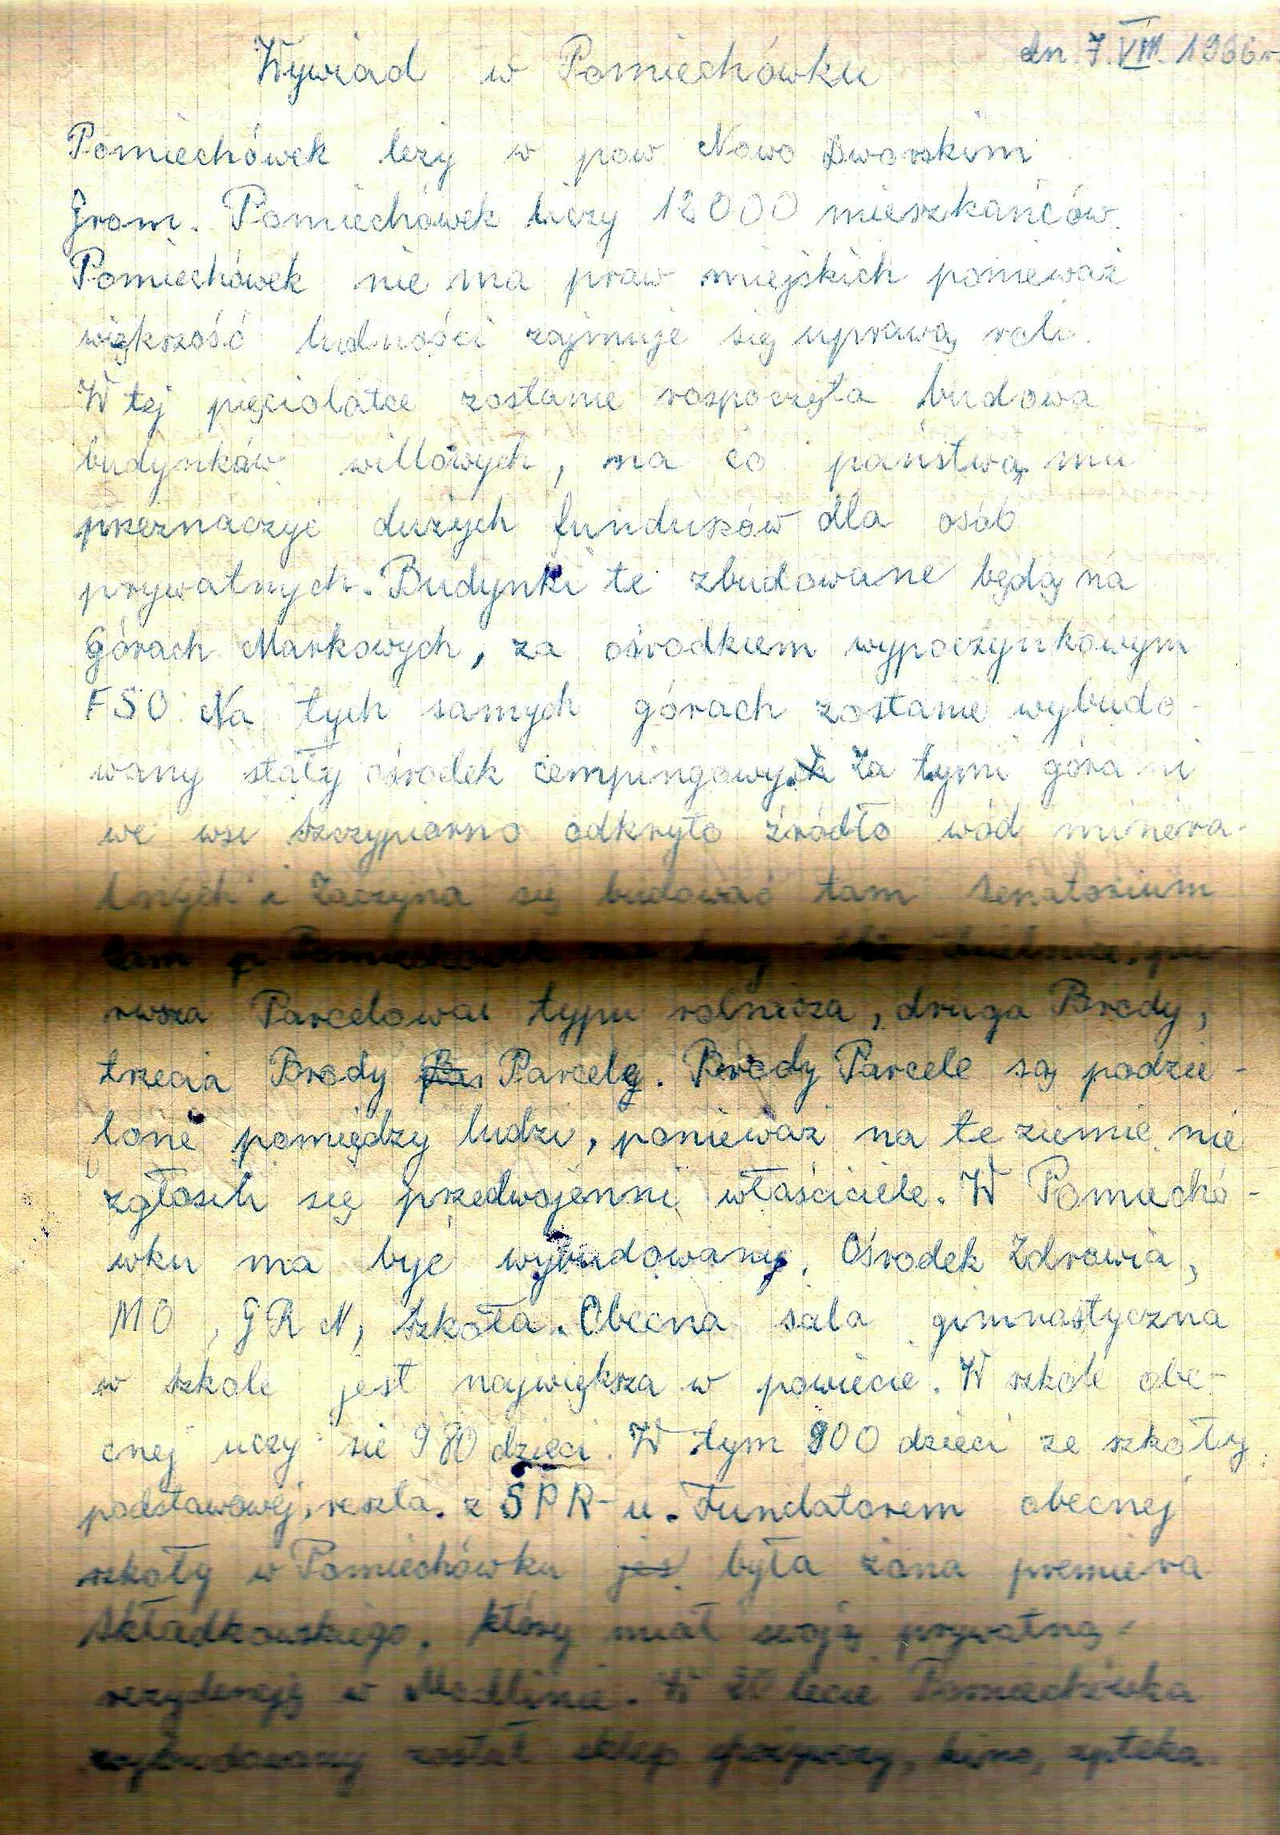 dn. 7.VIII. 1966r.
Wywiad w Pomiechówku
Pomiechówek leży w pow Nowo Dworskim
Grom. Pomiechówek liczy 12000 mieszkańców.
Pomiechówek nie ma praw miejskich ponieważ
większość ludności zajmuje się uprawą roli.
W tej pięciolatce zostanie rospoczęta budowa
budynków willowych, na co państwo ma
przeznaczyć dużych funduszów dla osób
prywatnych. Budynki te zbudowane będą na
Górach Markowych, za ośrodkiem wypoczynkowym
FSO. Na tych samych górach zostanie wybudo-
wany stały ośrodek cempingowy. Za tymi górami
we wsi Szczypiorno odkryto źródło wód minera-
lnych i zaczyna się budować tam senatorium
Pomiechówek ma trzy dzielnice, pie
rwsza Parcelowa typu rolnicza, druga Brody,
trzecia Brody Parcele. Brody Parcele są podzie-
lone pomiędzy ludzi, ponieważ na te ziemie nie
zgłosili się przedwojenni właściciele. W Pomiechó-
wku ma być wybudowany, Ośrodek Zdrowia,
MO, GRN, szkoła. Obecna sala gimnastyczna
w szkole jest największa w powiecie. W szkole obe-
cnej uczy sie 980 dzieci. W tym 800 dzieci ze szkoły
podstawowej, reszta z SPR-u. Fundatorem obecnej
szkoły w Pomiechówku jes była żona premiera
Składkowskiego, który miał swoją prywatną
rezydencję w Modlinie. W 20 lecie Pomiechówka
wybudowany został sklep spożywczy, kino, apteka.